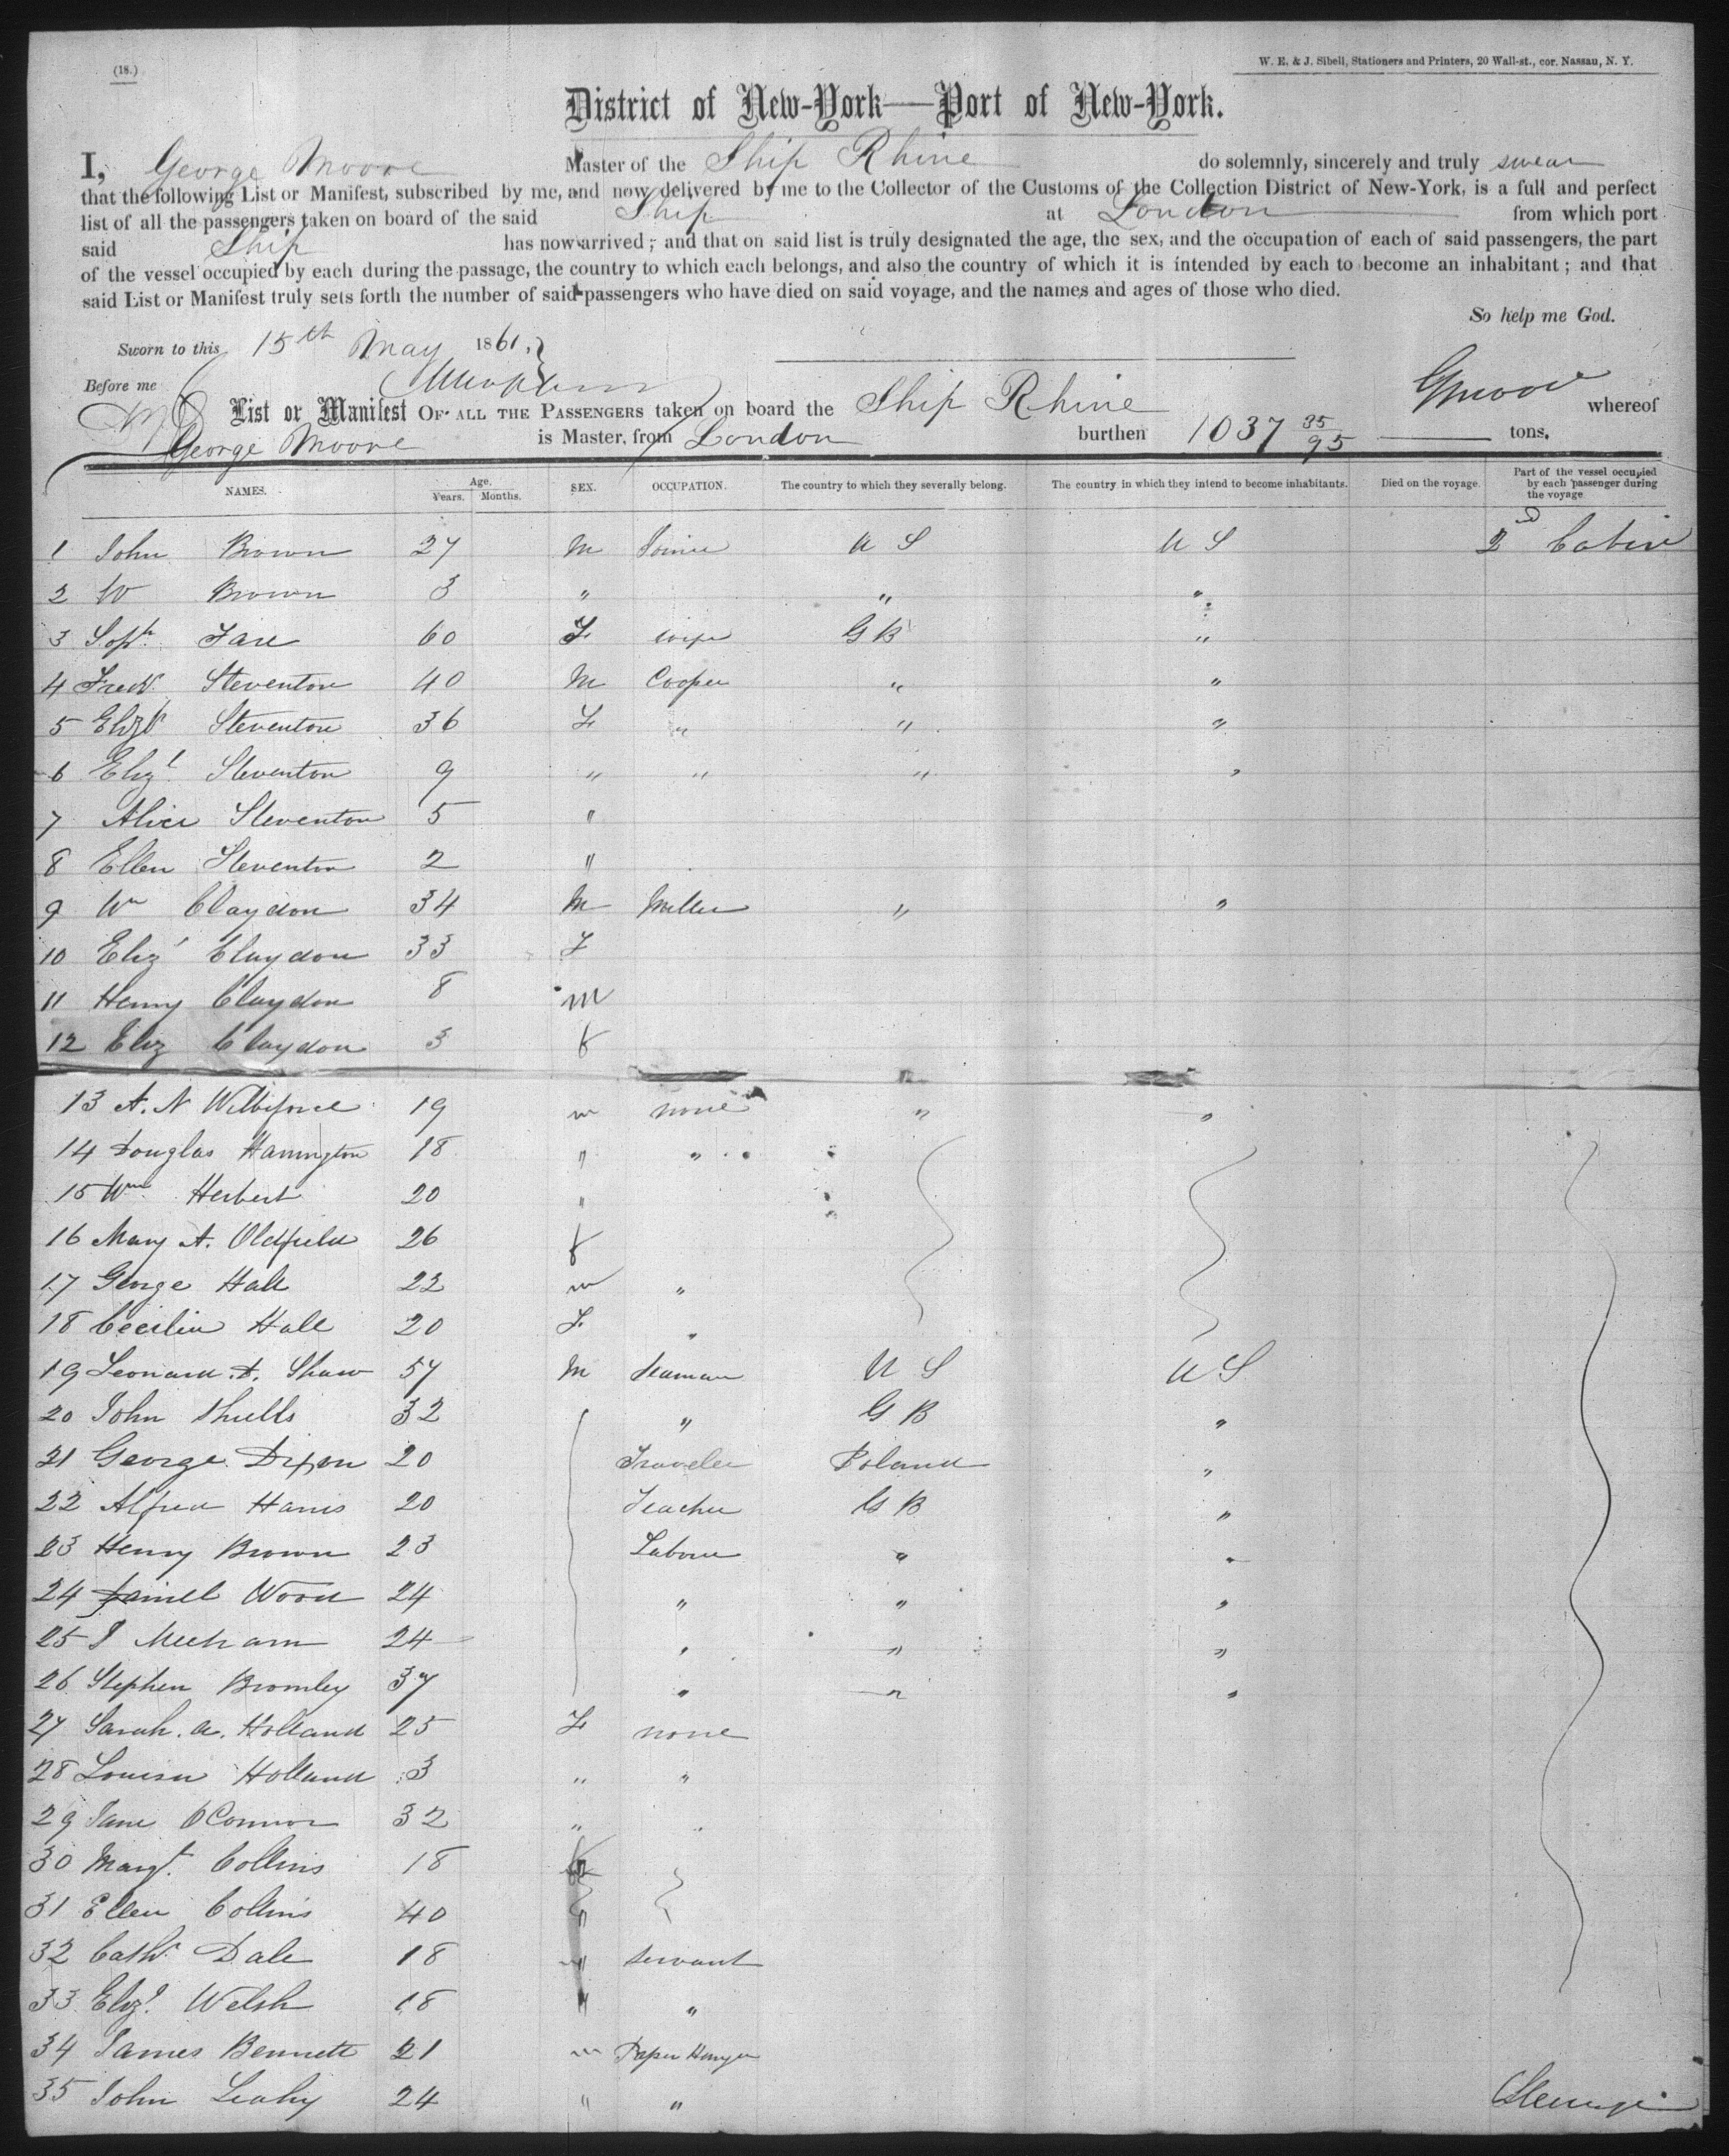 (18.)
W. E. & J. Sibell, Stationers and Printers, 20 Wall-st., cor. Nassau, N. Y.
District of New-York—Port of New-York.
I, George Moore Master of the Ship Rhine do solemnly, sincerely and truly swear
that the following List or Manifest, subscribed by me, and now delivered by me to the Collector of the Customs of the Collection District of New-York, is a full and perfect
list of all the passengers taken on board of the said Ship at London from which port
said Ship has now arrived; and that on said list is truly designated the age, the sex, and the occupation of each of said passengers, the part
of the vessel occupied by each during the passage, the country to which each belongs, and also the country of which it is intended by each to become an inhabitant; and that
said List or Manifest truly sets forth the number of said passengers who have died on said voyage, and the names and ages of those who died.
So help me God.
Sworn to this 15th May 1861,
Before me
GMoore
List or Manifest OF ALL THE PASSENGERS taken on board the Ship Rhine whereof
George Moore is Master, from London burthen 1037 35/95 tons.
NAMES. Age. Years. Months. SEX. OCCUPATION. The country to which they severally belong. The country in which they intend to become inhabitants. Died on the voyage. Part of the vessel occupied by each passenger during the voyage
1 John Brown 27 M Joiner U S U S 2nd Cabin
2 W Brown 3 " " "
3 Soph. 60 F wife G B "
4 Fredk. Steventon 40 M Cooper " "
5 Elizt Steventon 36 F " " "
6 Elizt. Steventon 9 " " " "
7 Alice Steventon 5 "
8 Ellen Steventon 2 "
9 Wm Claydon 34 M Miller " "
10 Eliz Claydon 33 F
11 Henry Claydon 8 m
12 Eliz Claydon 3 f
13 A. N Wilbeforce 19 m none " "
14 Douglas Hannington 18 " "
15 Wm Herbert 20 "
16 Mary A. Oldfield 26 f
17 George Hall 22 m "
18 Cecilia Hall 20 F "
19 Leonard D. Shaw 57 M Seaman U S U S
20 John Shiells 32 " G B "
21 George Dixon 20 Traveler Poland "
22 Alfred Harris 20 Teacher G B "
23 Henry Brown 23 Labour " "
24 Daniel Wood 24 " " "
25 J Meeham 24 " " "
26 Stephen Bromley 37 " " "
27 Sarah. A. Holland 25 F none
28 Louisa Holland 3 " "
29 Jane O'Connor 32 " "
30 Margt. Collins 18 f
31 Ellen Collins 40 "
32 Cath. Dale 18 " servant
33 Eliz. Welsh 18 " "
34 James Bennett 21 m Paper Hanger
35 John Leahy 24 " " Steerage